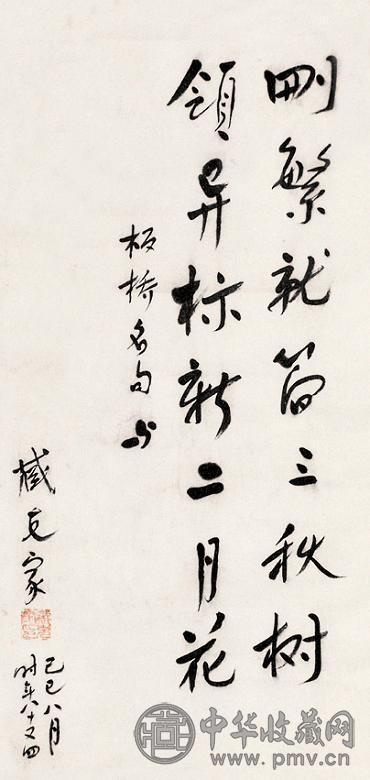 删繁就简三秋树
領异标新二月花
板桥名句 书
臧克家
己巳八月
时年八十又四
中华收藏网
www.pmv.cn